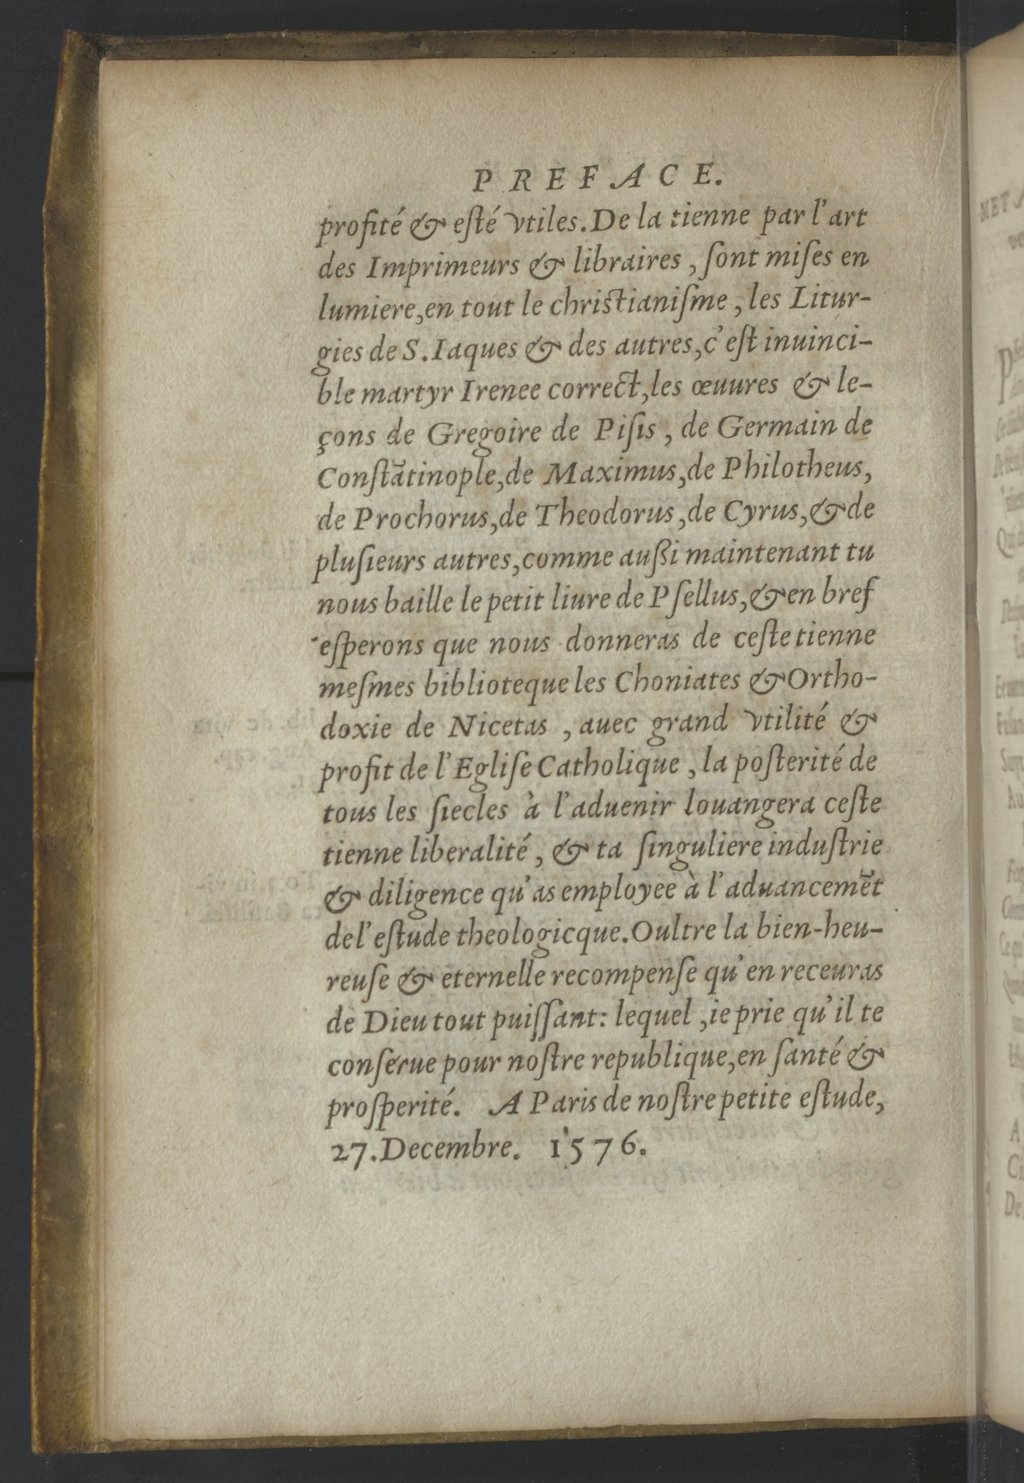 PREFACE.
profité & eſté vtiles. De la tienne par l'art
des Imprimeurs & libraires, ſont miſes en
lumiere, en tout le chriſtianiſme, les Litur-
gies de S. Iaques & des autres, c'eſt inuinci-
ble martyr Irenee correct, les œuures & le-
çons de Gregoire de Piſis, de Germain de
Conſtãtinople, de Maximus, de Philotheus,
de Prochorus, de Theodorus, de Cyrus, & de
pluſieurs autres, comme außi maintenant tu
nous baille le petit liure de Pſellus, & en bref
eſperons que nous donneras de ceſte tienne
meſmes biblioteque les Choniates & Ortho-
doxie de Nicetas, auec grand vtilité &
profit de l'Egliſe Catholique, la poſterité de
tous les ſiecles à l'aduenir louangera ceſte
tienne liberalité, & ta ſinguliere induſtrie
& diligence qu'as employee à l'aduancemẽt
de l'eſtude theologicque. Oultre la bien-heu-
reuſe & eternelle recompenſe qu'en receuras
de Dieu tout puiſſant: lequel, ie prie qu'il te
conſerue pour noſtre republique, en ſanté &
proſperité. A Paris de noſtre petite eſtude,
27. Decembre. 1576.